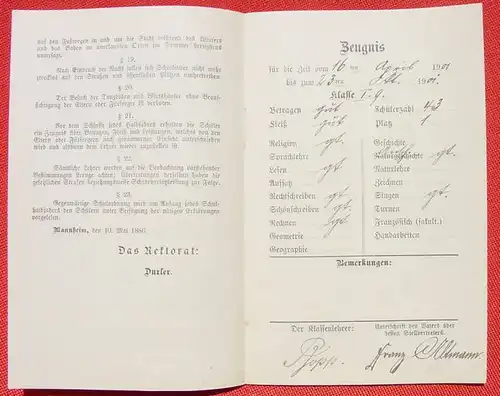 auf den Fußwegen in und um die Stadt während des Winters
und das Baden an unerlaubten Orten im Sommer strengstens
untersagt.
§ 19.
Nach Eintritt der Nacht sollen sich Schulkinder nicht mehr
zwecklos auf den Straßen und öffentlichen Plätzen umhertreiben.
§ 20.
Der Besuch der Tanzböden und Wirtshäuser ohne Beauf-
sichtigung der Eltern oder Fürsorger ist verboten.
§ 21.
Vor dem Schlusse jedes Halbjahres erhalten die Schüler
ein Zeugnis über Betragen, Fleiß und Leistungen, welches von den
Eltern oder Fürsorgern
§ 22.
Sämtliche Lehrer werden auf die Beobachtung vorstehender
Bestimmungen strenge achten; Übertretungen derselben haben die
gesetzlichen Strafen beziehungsweise zur Folge.
§ 23.
Gegenwärtige Schulordnung wird am Anfang jedes Schul-
halbjahrs den Schülern unter Beifügung der nötigen Erläuterungen
vorgelesen.
Mannheim, den 10. Mai 1886.
Das Rektorat:
Durler.
Zeugnis
für die Zeit vom 16 ten April 1901
bis zum 23 ten Okt. 1901.
Klasse I. q.
Betragen gut Schülerzahl 43
Fleiß gut Platz 1
Religion gt. Geschichte
Sprachlehre gt. Naturgeschichte gt.
Lesen gt. Naturlehre
Aufsatz Zeichnen
Rechtschreiben gt. Singen gt.
Schönschreiben gt. Turnen gt.
Rechnen gt. Französisch (fakult.)
Geometrie Handarbeiten
Geographie
Bemerkungen:
Der Klassenlehrer: Unterschrift des Vaters oder
dessen Stellvertreters.
Franz Altmann